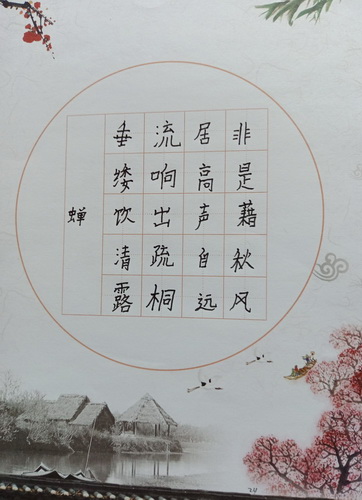 蝉
垂緌饮清露
流响出疏桐
居高声自远
非是藉秋风